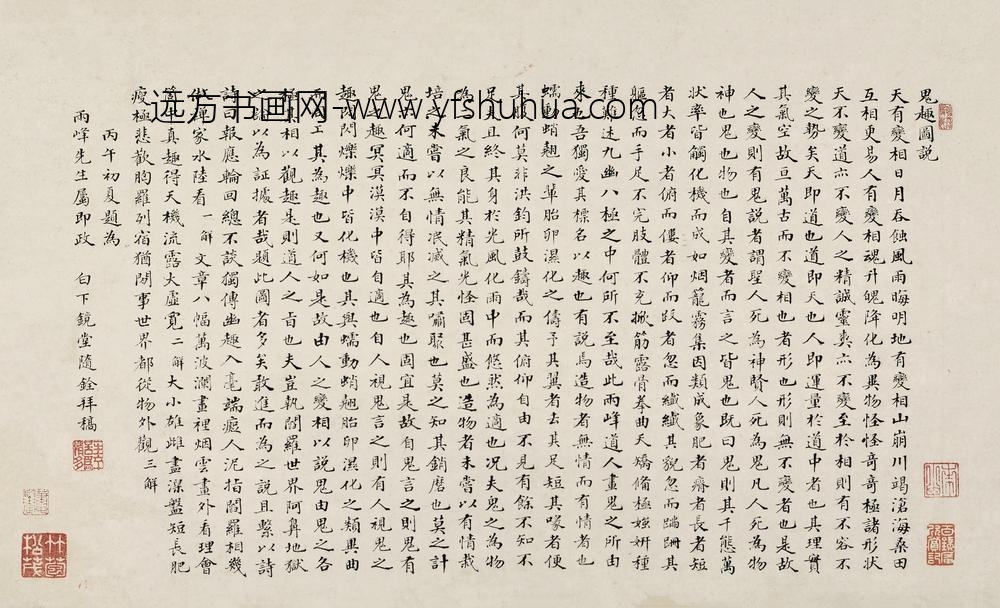 鬼趣圖說
天有變相日月吞蝕風雨晦明地有變相山崩川竭滄海桑田
互相更易人有變相魂升魄降化為異物怪怪奇奇極諸形狀
天不變道亦不變人之精誠靈爽亦不變至於相則有不容不
變之勢矣天即道也道即天也人即運量於道中者也其理實
其氣空故亘萬古而不變相也者形也形則無不變者也是故
人之變則有鬼說者謂聖人死為神賢人死為鬼凡人死為物
神也鬼也物也自其變者而言之皆鬼也既曰鬼則其千態萬
狀率皆觸化機而成如烟籠霧集因類成象肥者瘠者長者短
者大者小者俯而僂者仰而跂者忽而纖纖其貌忽而蹣跚其
軀而手足不完肢體不充掀筋露骨拳曲夭矯備極媸妍種
種述九幽八極之中何所不至哉此雨峰道人畫鬼之所由
來也吾獨愛其標名以趣也有說焉造物者無情而有情者也
蠕動蛸翹之輩胎卵濕化之儔予其翼者去其足短其喙者便
其腹何莫非洪鈞所鼓鑄哉而其俯仰自由不見有餘不知不
足且終其身於光風化雨中而悠然為適也况夫鬼之為物
為氣之良能其精氣光怪固甚盛也造物者未嘗以有情栽
培之未嘗以無情泯滅之其嘯聚也莫之知其銷磨也莫之計
鬼何適而不自得耶其為趣也固宜是故自鬼言之則鬼有
鬼之趣冥冥漠漠中皆自適也自人視鬼言之則有人視鬼之
趣閃閃爍爍中皆化機也其與蠕動蛸翹胎卵濕化之類異曲
工其為趣也又何如是故由人之變相以說鬼由鬼之各
種相以觀趣是則道人之旨也夫豈執閻羅世界阿鼻地獄
說以為証據者哉題此圖者多矣敢進而為之說且繫以詩
詩曰報應輪回總不談獨傳幽趣入毫端癡人泥指閻羅相幾
作禪家水陸看一解文章八幅萬波瀾畫裡烟雲畫外看理會
箇中真趣得天機流露大虛寬二解大小雄雌盡深盤短長肥
瘦極悲歡胸羅列宿猶閒事世界都從物外觀三解
丙午初夏題為
雨峰先生屬即政 白下鏡堂隨銓拜稿
远方书画网-www.yfshuhua.com